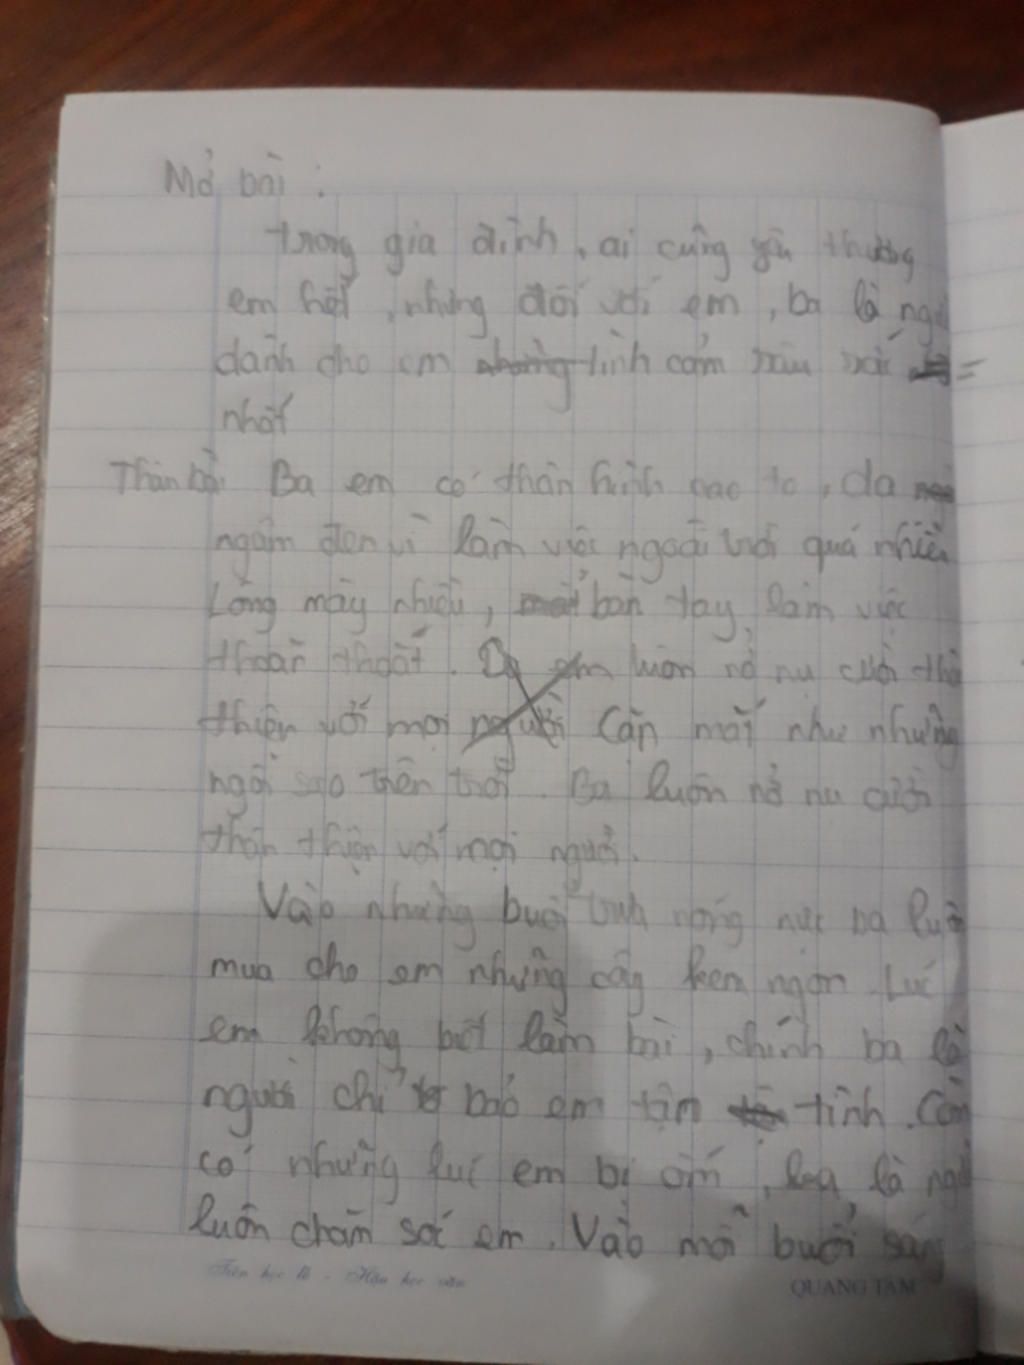 Mở bài :
trong gia đình, ai cũng yêu thương
em hết, nhưng đối với em, ba là ngư
dành cho em những tình cảm sâu sắc
nhất
Thân bài Ba em có thân hình cao to, da
ngâm đen vì làm việc ngoài trời quá nhiều
Lông mày nhiều, bàn tay làm việc
thoăn thoắt. em luôn nở nụ cười thâ
thiện với mọi người Cặp mắt như những
ngôi sao trên trời. Ba luôn nở nụ cười
thân thiện với mọi người.
Vào những buổi trưa nóng nực ba luôn
mua cho em những cây kem ngon. Lúc
em không biết làm bài, chính ba là
người chỉ bảo em tận tình. Còn
có những lúc em bị ốm, ba là ngư
luôn chăm sóc em. Vào mỗi buổi sáng
Tiên học lễ - Hậu học văn
QUANG TÂM